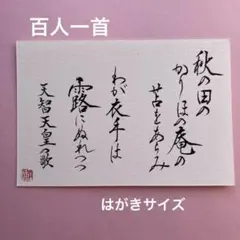 百人一首
秋の田の
かりほの庵の
苫をあらみ
わが衣手は
露にぬれつつ
天智天皇の歌
はがきサイズ